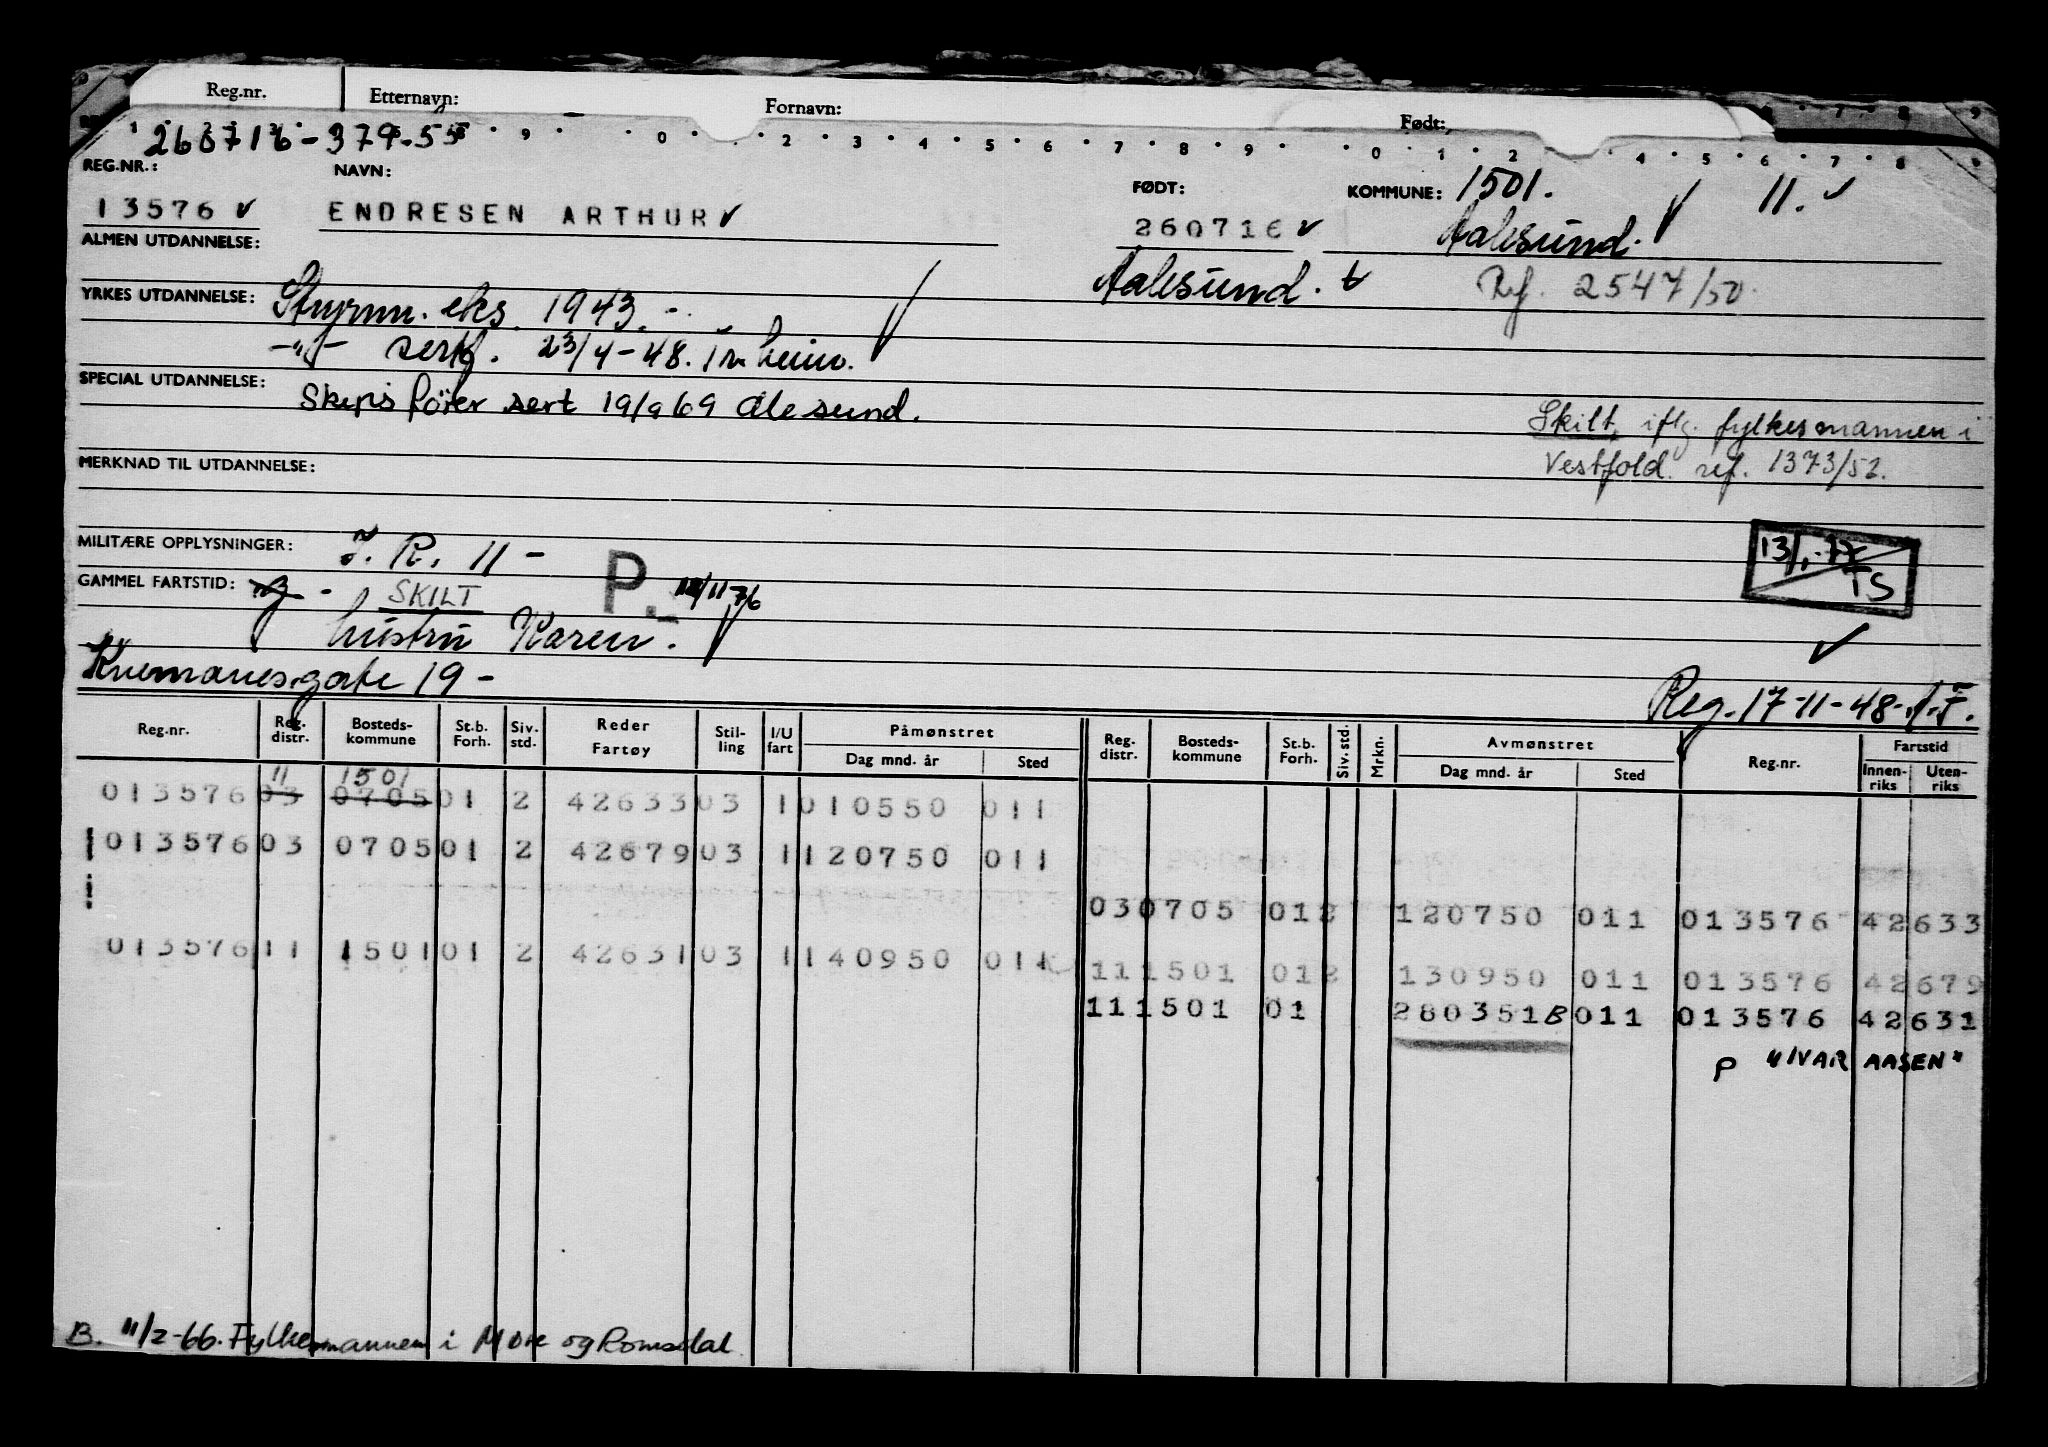 Reg.nr. Etternavn: Fornavn: Født:
268716-379.5
9 0 2 3 4 5 6 7 8 9 0 1 2 4 5 6 7 8 9
REG.NR.: NAVN: FØDT: KOMMUNE: 1501. 11.
13576 ENDRESEN ARTHUR 260716 Aalesund.
ALMEN UTDANNELSE: Aalesund. t Ref. 2547/50.
YRKES UTDANNELSE: Styrm. eks. 1943.-
-"- sertf. 23/4-48. Tr.heim.
SPECIAL UTDANNELSE: Skipsfører sert 19/9 69 Ålesund.
Skilt, iflg. fylkesmannen i
Vestfold. ref. 1373/52.
MERKNAD TIL UTDANNELSE:
MILITÆRE OPPLYSNINGER: I. R. 11 -
13/1-77 TS
GAMMEL FARTSTID: - SKILT P. 11/76
hustru Karen.
Reg. 17-11-48-
19 -
Reg.nr. Reg. distr. Bosteds-kommune St.b. Forh. Siv. std. Reder Fartøy Stil-ling I/U fart Påmønstret Dag mnd. år Sted Reg. distr. Bosteds-kommune St.b. Forh. Siv. std. Mrkn. Avmønstret Dag mnd. år Sted Reg.nr. Fartstid Innen-riks Uten-riks
11 1501
013576 03 0705 01 2 42633 03 1 010550 011
013576 03 0705 01 2 42679 03 1 120750 011
03 0705 01 2 120750 011 013576 42633
013576 11 1501 01 2 42631 03 1 140950 011
11 1501 01 2 130950 011 013576 42679
11 1501 01 280351 B 011 013576 42631
P "IVAR AASEN"
B. 11/2-66. Fylkesmannen i Møre og Romsdal